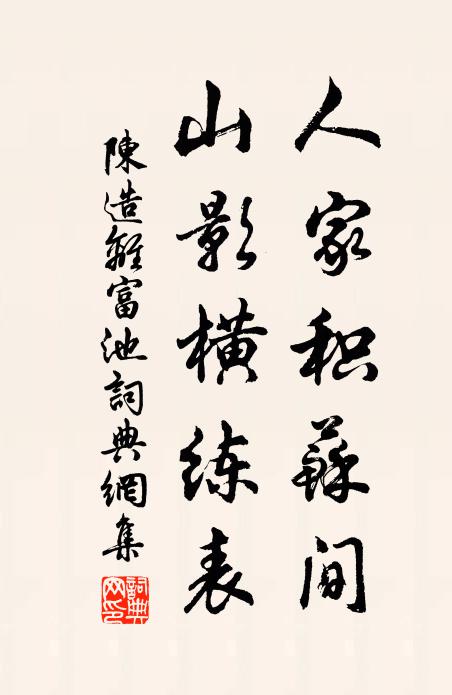 人家积蘇间
山影橫练表
陳造離富池詞典網集
詞典网印